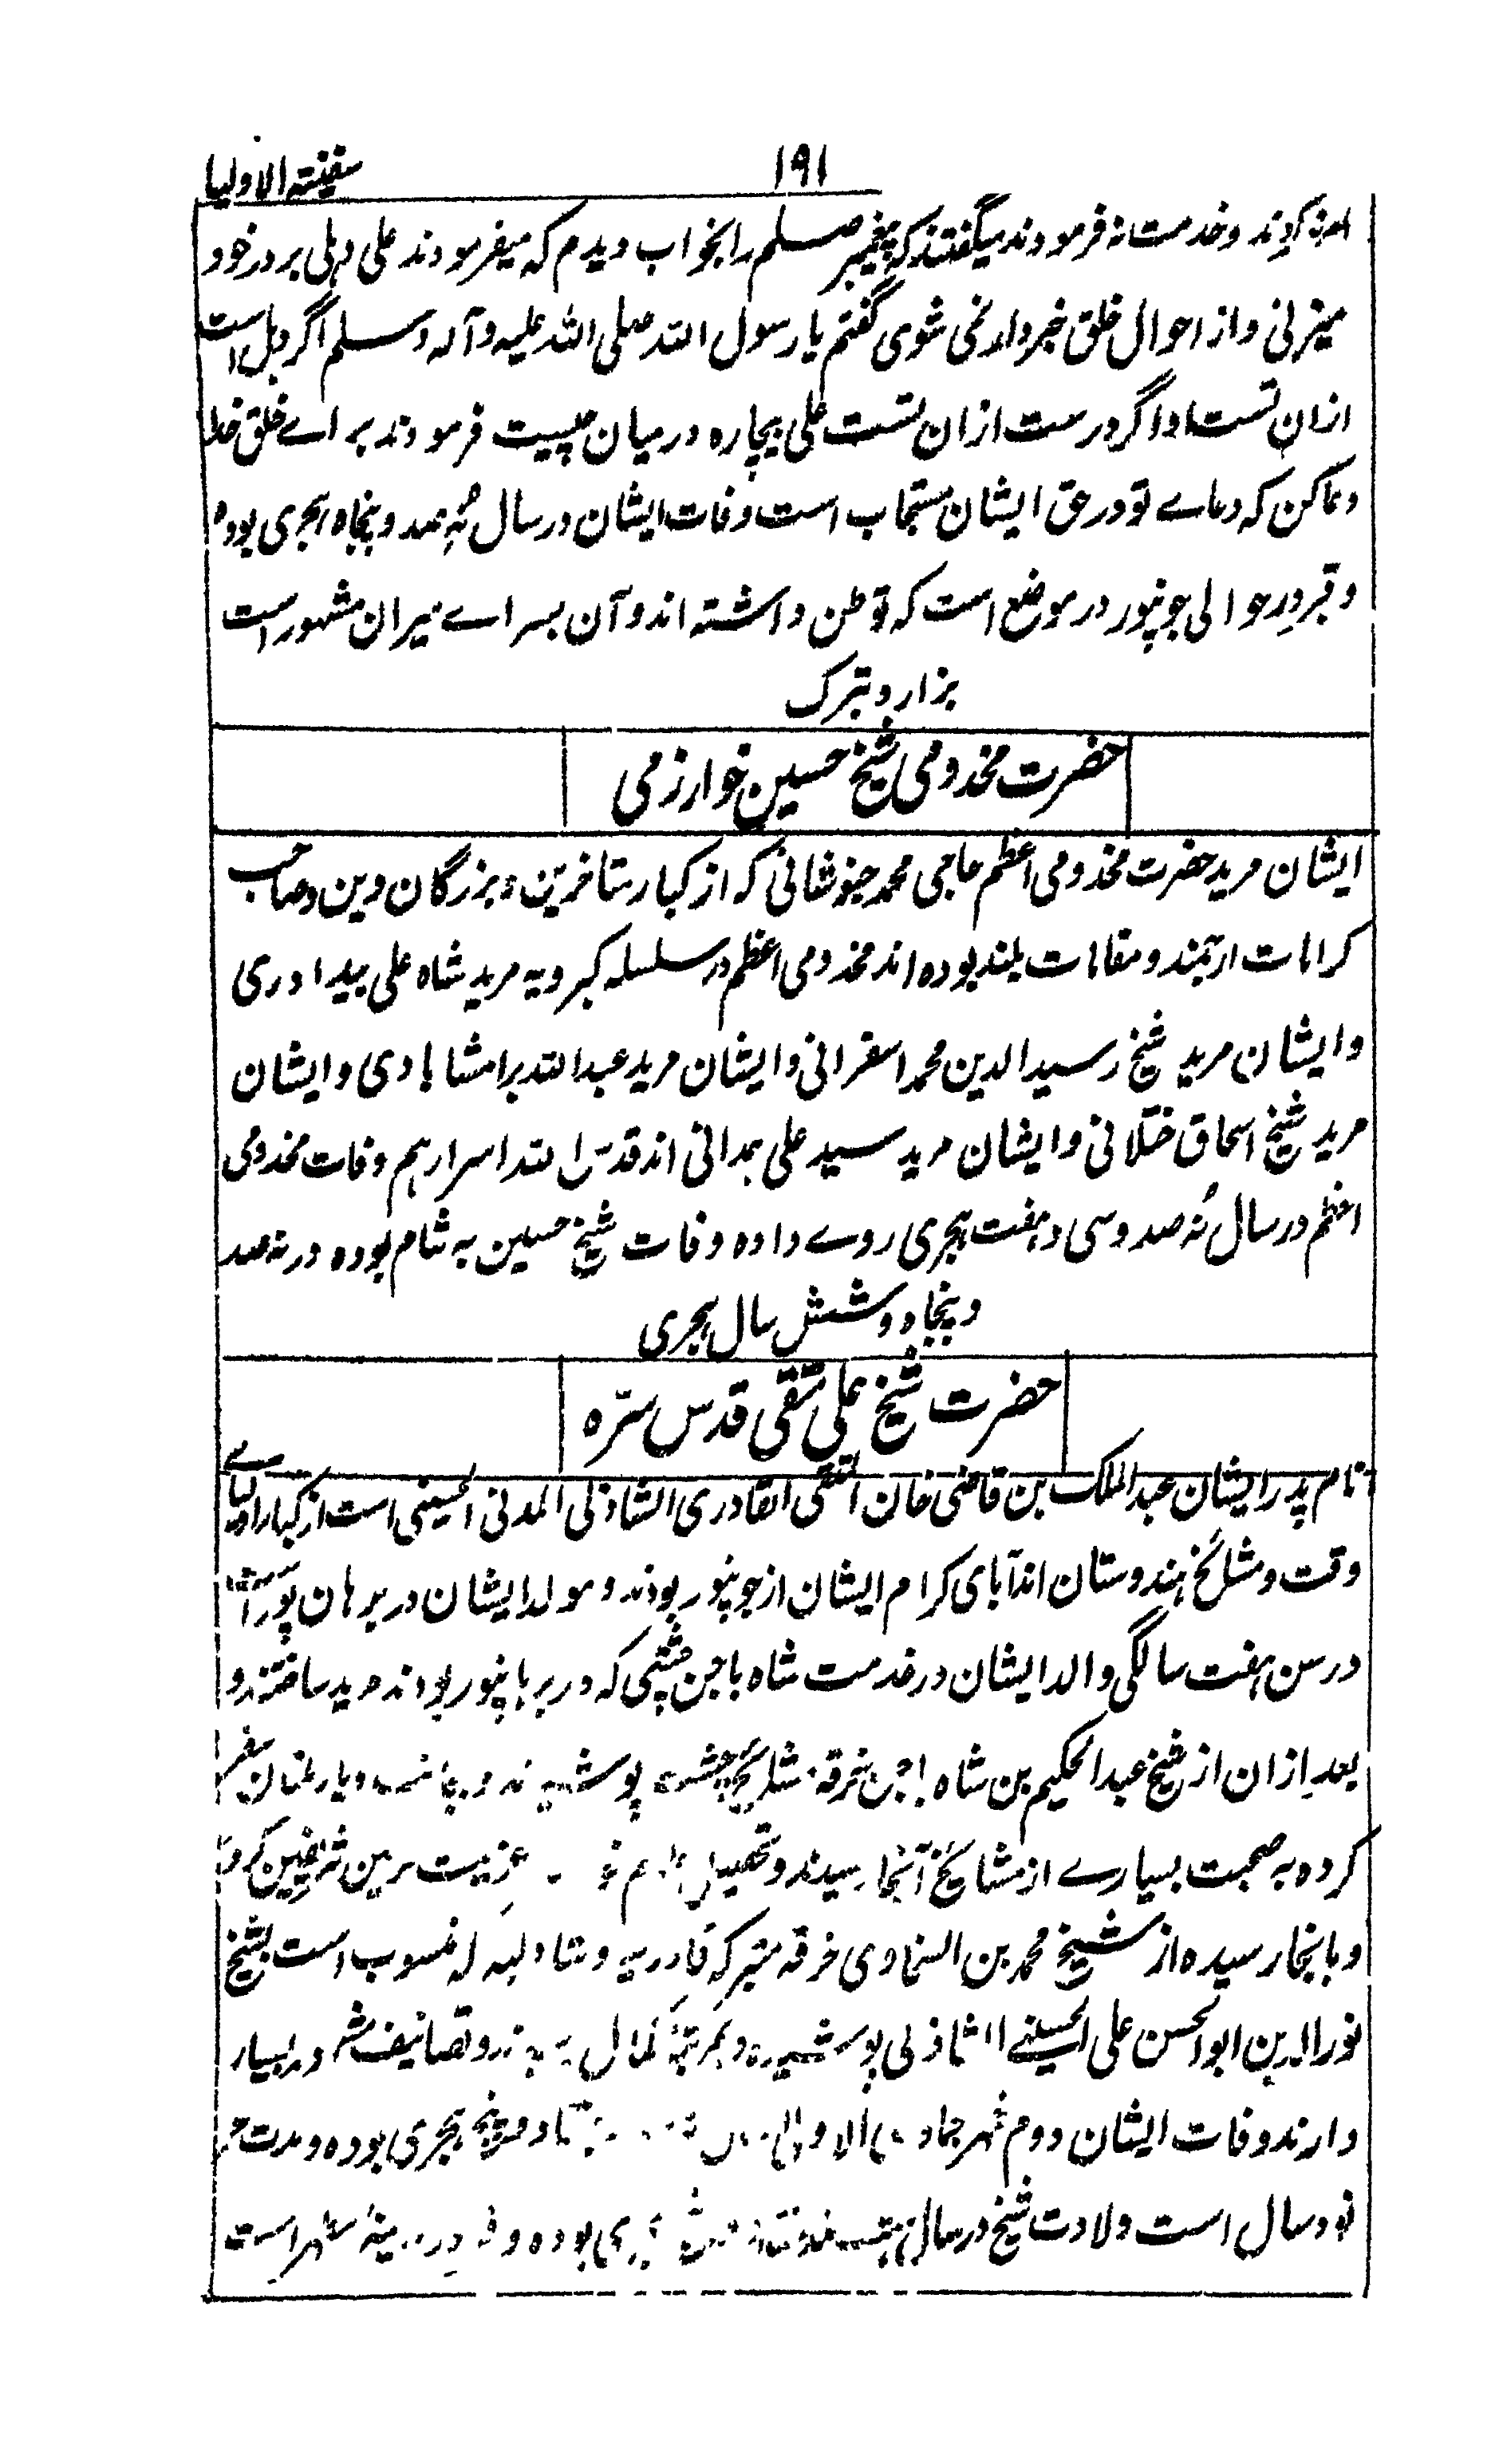 سفینۃ الاولیا ۱۹۱
و خدمت نه فرمودند میگفتند که پیغمبر صلعم را بخواب دیدم که میفرمودند علی دہلی بر در خود
میزنی و از احوال خلق خبردار نمی شوی گفتم یا رسول اللہ صلی اللہ علیہ و آلہ وسلم اگر دہل است
ازان تست و اگر درست ازان تست علی بیچاره درمیان چیست فرمودند براے خلق خدا
دعا کن که دعاے تو در حق ایشان مستجاب است وفات ایشان در سال نُه صد و پنجاه ہجری بوده
و قبر در حوالی جونپور در موضع است که توطن داشته اند و آن بسراے میران مشہور است
یزار و یتبرک
حضرت مخدومی شیخ حسین خوارزمی
ایشان مرید حضرت مخدومی اعظم حاجی محمد جنوشانی که از کبار متاخرین و بزرگان دین و صاحب
کرامات ارجمند و مقامات بلند بوده اند مخدومی اعظم در سلسله کبرویه مرید شاه علی بیداوری
و ایشان مرید شیخ رسیدالدین محمد اسفرانی و ایشان مرید عبداللہ برامشابادی و ایشان
مرید شیخ اسحاق ختلانی و ایشان مرید سید علی ہمدانی اند قدس اللہ اسرارہم وفات مخدومی
اعظم در سال نُه صد و سی و ہفت ہجری روے داده وفات شیخ حسین به شام بوده در نه صد
و پنجاه و شش سال ہجری
حضرت شیخ علی متقی قدس سرّه
نام پدر ایشان عبدالملک بن قاضی خان المتقی القادری الشاذلی المدنی الحسینی است از کبار اولیاے
وقت و مشائخ ہندوستان اند آبای کرام ایشان از جونپور بودند و مولد ایشان در برہان پور است
در سن ہفت سالگی والد ایشان در خدمت شاه باجن چشتی که در برہانپور بودند مرید ساختند و
بعد ازان از شیخ عبدالحکیم بن شاه باجن خرقه مشایخ چشت پوشیدند و بجانب دیار ملتان سفر
کرده به صحبت بسیارے از مشایخ آنجا رسیدند و تحصیل عزیمت حرمین شریفین کرد
و بانجا رسیده از شیخ محمد بن السخاوی خرقه متبرکه قادریه و شاذلیه که منسوب است بشیخ
نورالدین ابوالحسن علی الحسینے الشاذلی پوشیده و بمرتبۂ کمال رسیدند و تصانیف مشہوره بسیار
دارند وفات ایشان دوم شہر جمادی الاولی و پنج ہجری بوده و مدت عمر
نود سال است ولادت شیخ در سال ہشت صد ہجری بوده و قبر در مدینۂ مطہر است